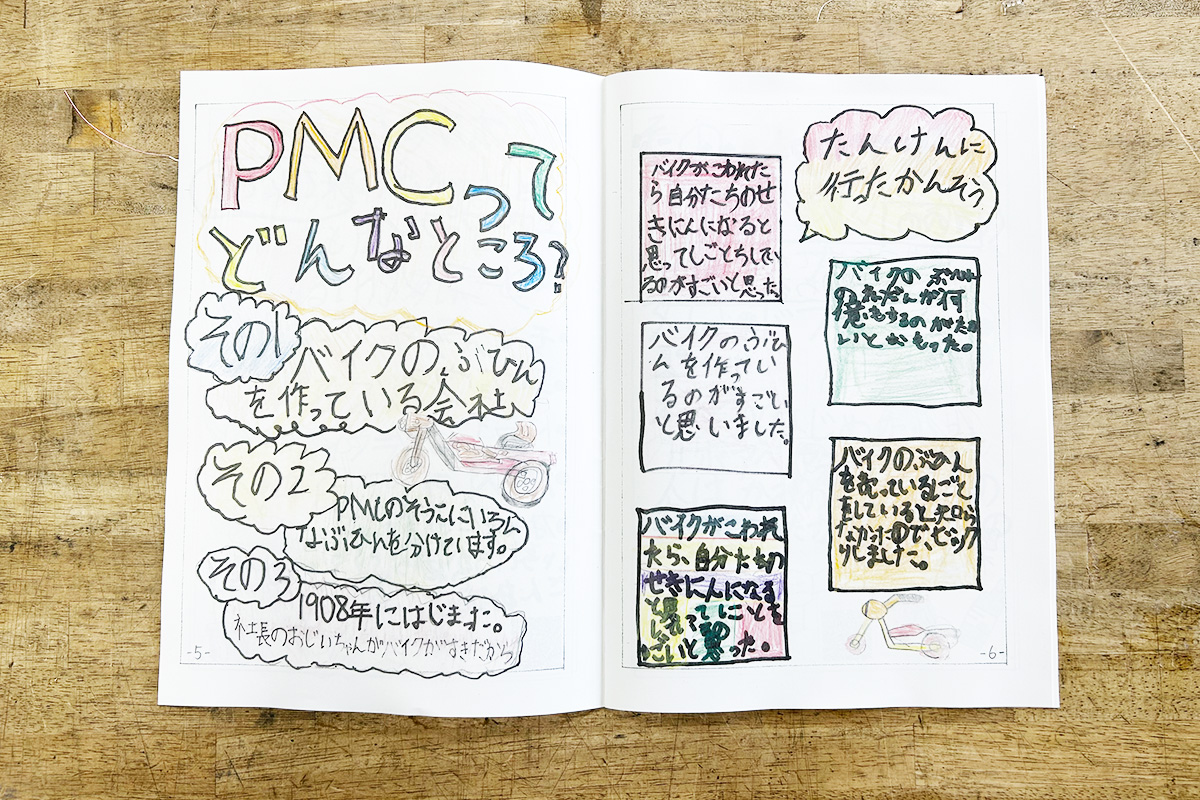 PMCって
どんなところ?
その1
バイクのぶひん
を作っている会社
その2
PMCのそうこにいろん
なぶひんを分けています。
その3
1908年にはじまった。
社長のおじいちゃんがバイクがすきだから
-5-
たんけんに
行ったかんそう
バイクがこわれた
ら自分たちのせ
きにんになると
思ってしごとをしてい
るのがすごいと思った
バイクのぶひ
んを作ってい
るのがすごい
と思いました。
バイクがこわれ
たら、自分たちの
せきにんになる
バイクの
いとおもった。
バイクのぶひん
を売っているしごと
をしていると知ら
なかったので、ビック
りしました。
-6-